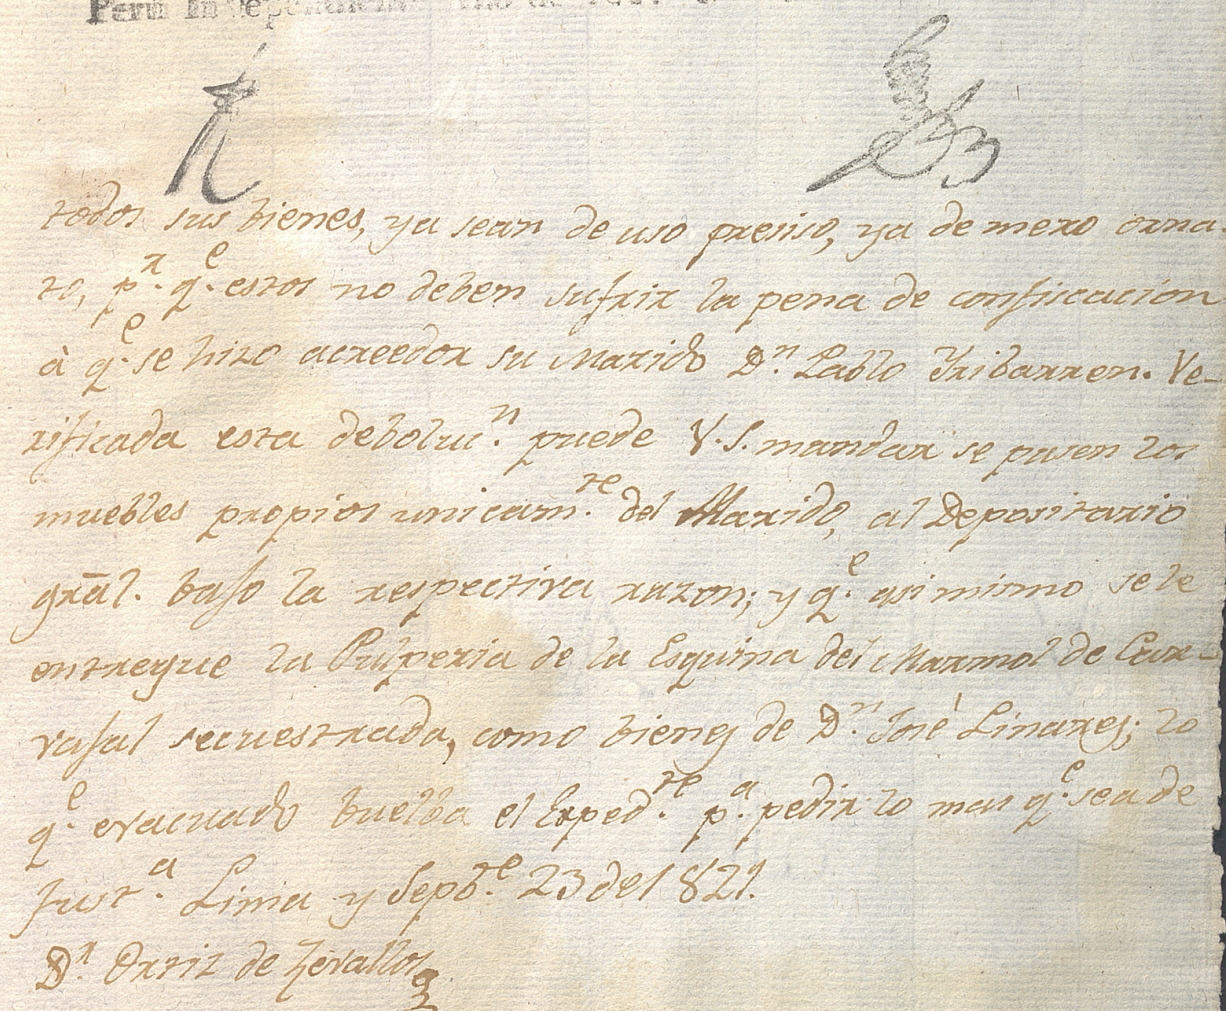 Peru Independiente
todos sus bienes, ya sean de uso preciso, ya de mero orna-
to, p.r q.e estos no deben sufrir la pena de confiscacion
à q.e se hizo acreedor su Marido D.n Pablo Yribarren. Ve-
rificada esta deboluc.n puede V.S. mandar se pasen los
muebles propios unicam.te del Marido, al Depositario
gral. bajo la respectiva razon; y q.e asi mismo se le
entregue la Pulperia de la Esquina del Marmol de Car-
vajal secuestrada, como bienes de D.n José Linares; lo
q.e evacuado buelba el Exped.te p.a pedir lo mas q.e sea de
Just.a Lima y Sepb.re 23 de 1821.
D.r Ortiz de Zevallos